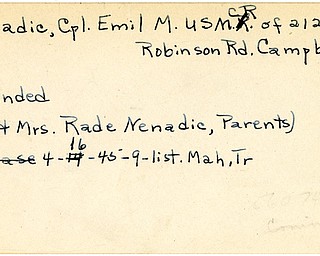 adic, Cpl. Emil M. USMCR of 212
Robinson Rd. Campb
nded
Mrs. Rade Nenadic, Parents)
ase 4-16-45-9-list. Mah, Tr